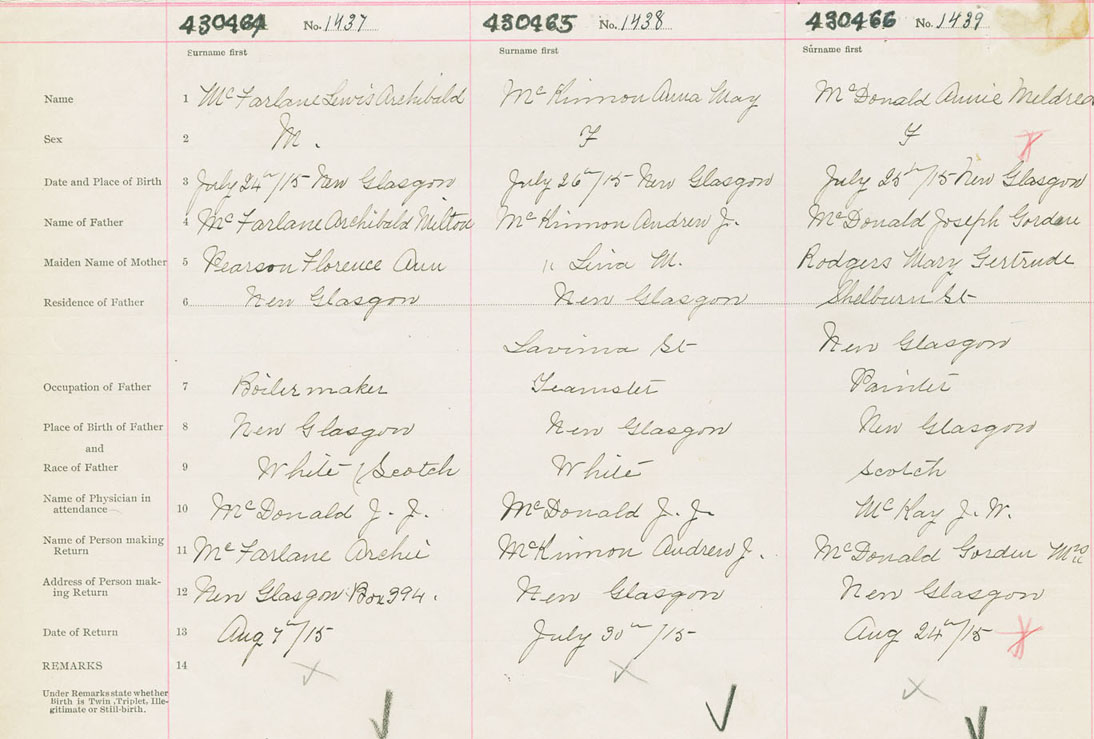 430464 No. 1437 430465 No. 1438 430466 No. 1439
Surname first Surname first Surname first
Name 1 McFarlane Lewis Archibald McKinnon Anna May McDonald Annie Mildred
Sex 2 M. F F
Date and Place of Birth 3 July 24th/15 New Glasgow July 26th/15 New Glasgow July 25th/15 New Glasgow
Name of Father 4 McFarlane Archibald Milton McKinnon Andrew J. McDonald Joseph Gorden
Maiden Name of Mother 5 Pearson Florence Ann " Lina M. Rodgers Mary Gertrude
Residence of Father 6 New Glasgow New Glasgow Shelburn St
Lavinia St New Glasgow
Occupation of Father 7 Boilermaker Teamster Painter
Place of Birth of Father 8 New Glasgow New Glasgow New Glasgow
and
Race of Father 9 White / Scotch White Scotch
Name of Physician in
attendance 10 McDonald J. J. McDonald J. J. McKay J. W.
Name of Person making
Return 11 McFarlane Archie McKinnon Andrew J. McDonald Gorden Mrs
Address of Person mak-
ing Return 12 New Glasgow Box 394. New Glasgow New Glasgow
Date of Return 13 Aug 7th/15 July 30th/15 Aug 24th/15
REMARKS 14
Under Remarks state whether
Birth is Twin, Triplet, Ille-
gitimate or Still-birth.